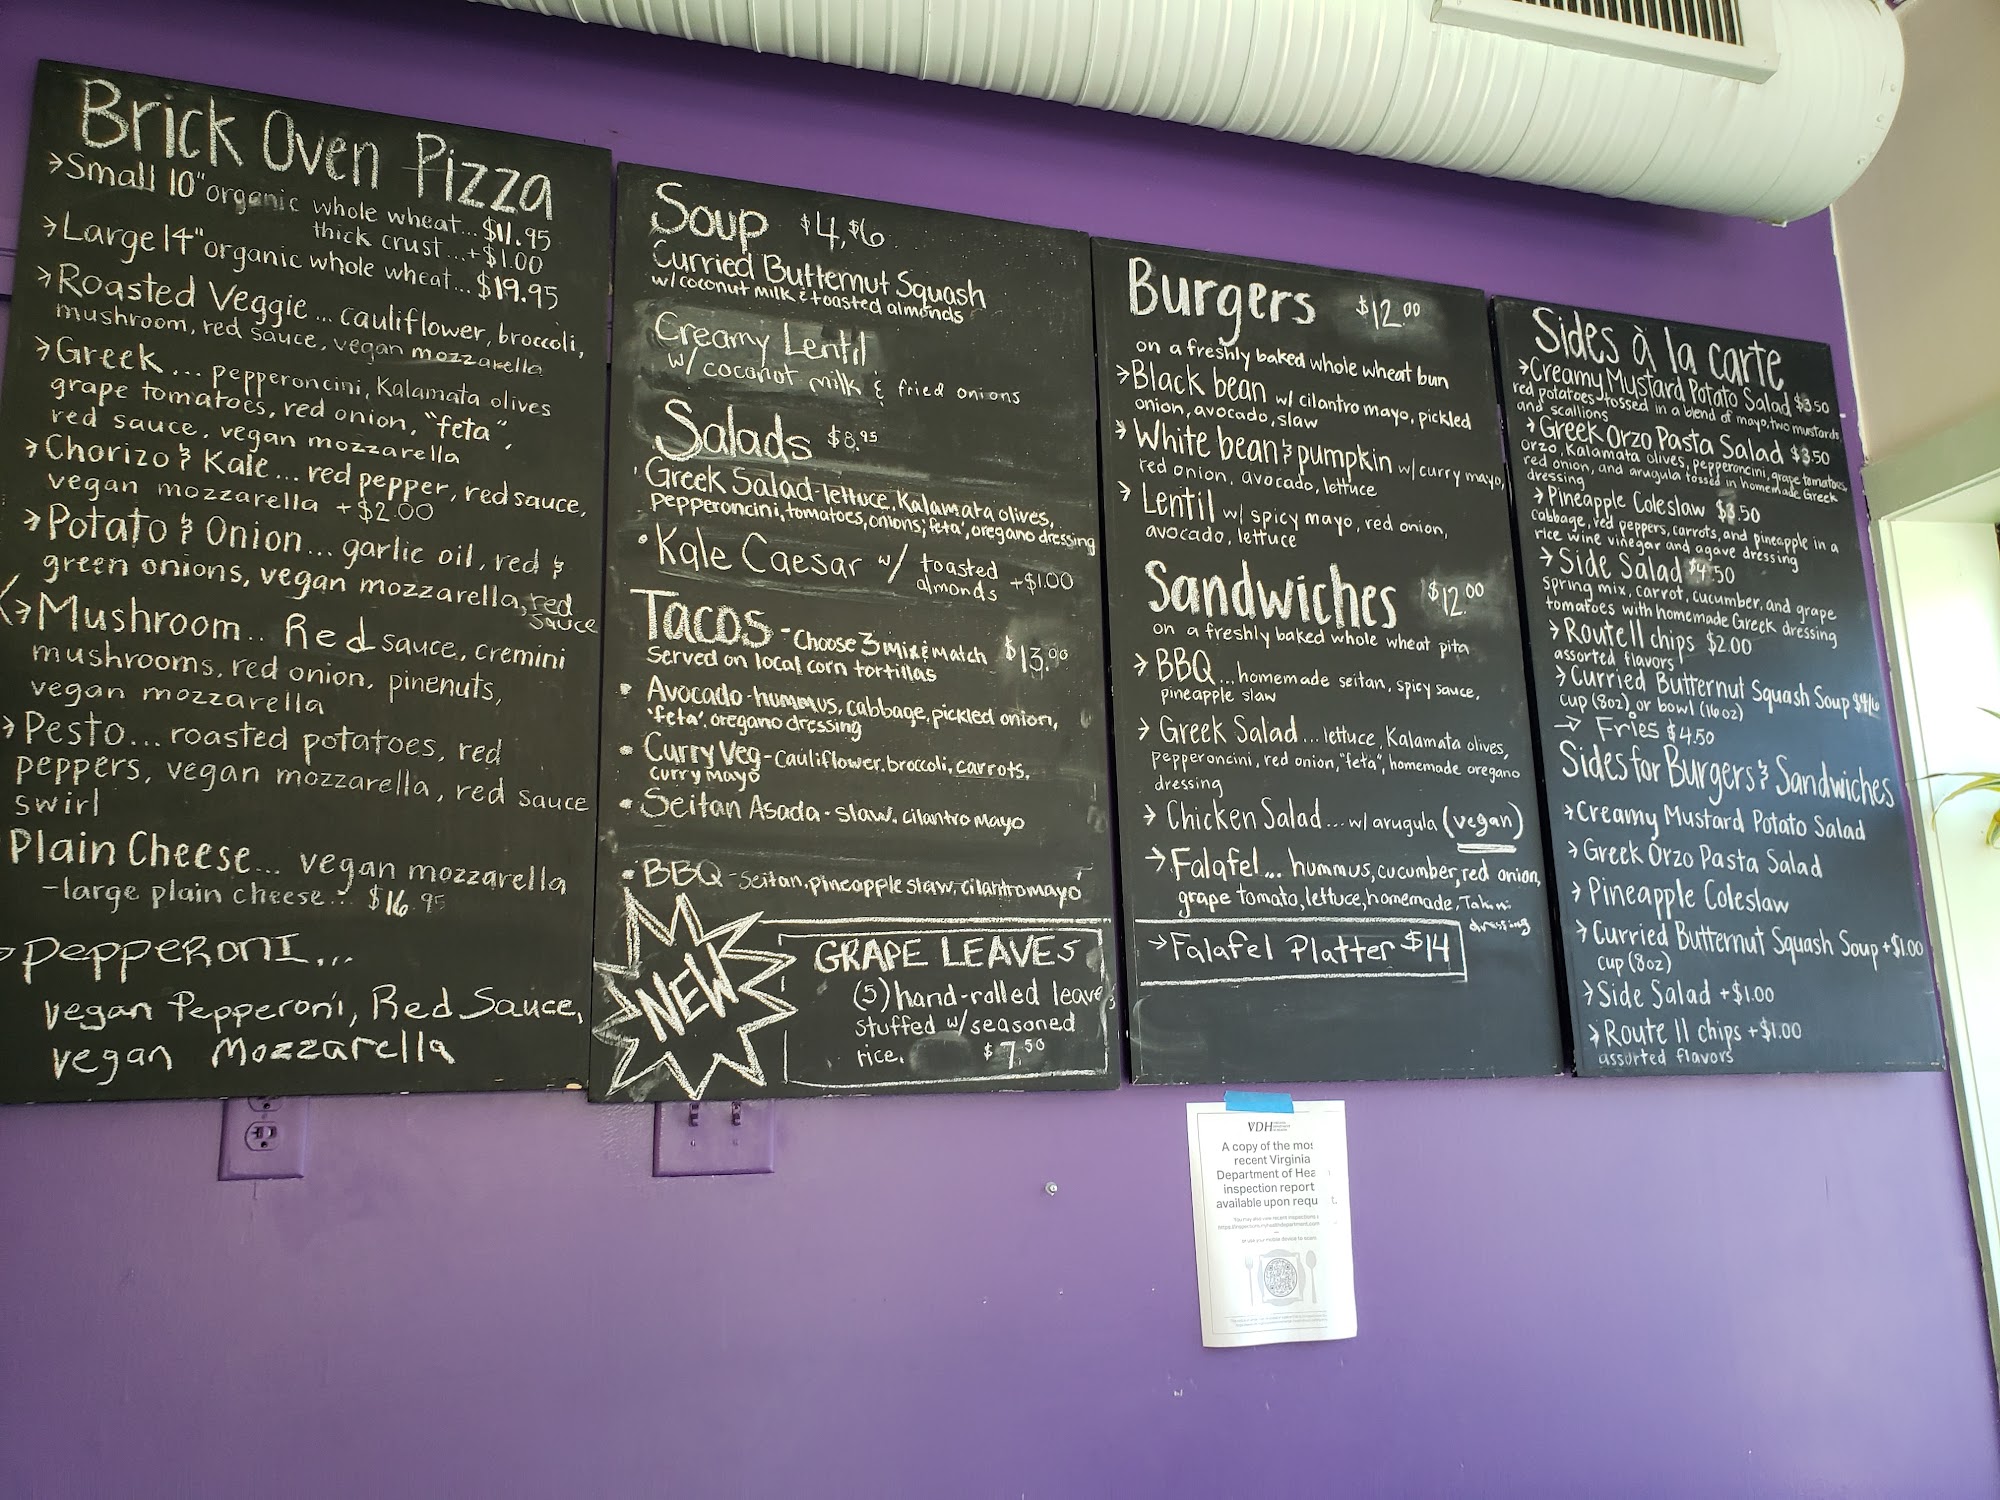 Brick Oven Pizza
→Small 10" organic whole wheat... $11.95
thick crust...+$1.00
→Large 14" organic whole wheat... $19.95
→Roasted Veggie... cauliflower, broccoli,
mushroom, red sauce, vegan mozzarella
→Greek... pepperoncini, Kalamata olives
grape tomatoes, red onion, "feta",
red sauce, vegan mozzarella
→Chorizo & Kale... red pepper, red sauce,
vegan mozzarella +$2.00
→Potato & Onion... garlic oil, red &
green onions, vegan mozzarella, red
sauce
→Mushroom.. Red sauce, cremini
mushrooms, red onion, pinenuts,
vegan mozzarella
→Pesto... roasted potatoes, red
peppers, vegan mozzarella, red sauce
swirl
Plain Cheese... vegan mozzarella
-large plain cheese... $16.95
→Pepperoni...
vegan Pepperoni, Red Sauce,
vegan Mozzarella
Soup $4, $6
Curried Butternut Squash
w/coconut milk & toasted almonds
Creamy Lentil
w/ coconut milk & fried onions
Salads $8.95
Greek Salad-lettuce, Kalamata olives,
pepperoncini, tomatoes, onions, 'feta', oregano dressing
•Kale Caesar w/ toasted
almonds +$1.00
Tacos - Choose 3 mix & match $13.00
Served on local corn tortillas
• Avocado-hummus, cabbage, pickled onion,
'feta', oregano dressing
• Curry Veg-cauliflower, broccoli, carrots,
curry mayo
• Seitan Asada - slaw, cilantro mayo
• BBQ-Seitan, pineapple slaw, cilantro mayo
NEW
GRAPE LEAVES
(5) hand-rolled leaves
stuffed w/seasoned
rice. $7.50
Burgers $12.00
on a freshly baked whole wheat bun
→Black bean w/ cilantro mayo, pickled
onion, avocado, slaw
→White bean & pumpkin w/curry mayo,
red onion, avocado, lettuce
→Lentil w/ spicy mayo, red onion,
avocado, lettuce
Sandwiches $12.00
on a freshly baked whole wheat pita
→BBQ...homemade seitan, spicy sauce,
pineapple slaw
→Greek Salad...lettuce, Kalamata olives,
pepperoncini, red onion, "feta", homemade oregano
dressing
→Chicken Salad...w/ arugula (vegan)
→Falafel... hummus, cucumber, red onion,
grape tomato, lettuce, homemade, Tahini
dressing
→Falafel Platter $14
Sides à la carte
→Creamy Mustard Potato Salad $3.50
red potatoes tossed in a blend of mayo, two mustards
and scallions
→Greek Orzo Pasta Salad $3.50
orzo, Kalamata olives, pepperoncini, grape tomatoes,
red onion, and arugula tossed in homemade Greek
dressing
→Pineapple Coleslaw $3.50
cabbage, red peppers, carrots, and pineapple in a
rice wine vinegar and agave dressing
→Side Salad $4.50
spring mix, carrot, cucumber, and grape
tomatoes with homemade Greek dressing
→Route 11 chips $2.00
assorted flavors
→Curried Butternut Squash Soup $4/6
cup (8oz) or bowl (16oz)
→Fries $4.50
Sides for Burgers & Sandwiches
→Creamy Mustard Potato Salad
→Greek Orzo Pasta Salad
→Pineapple Coleslaw
→Curried Butternut Squash Soup +$1.00
cup (8oz)
→Side Salad +$1.00
→Route 11 chips +$1.00
assorted flavors
VDH
A copy of the mos
recent Virginia
Department of Hea
inspection report
available upon requ t.